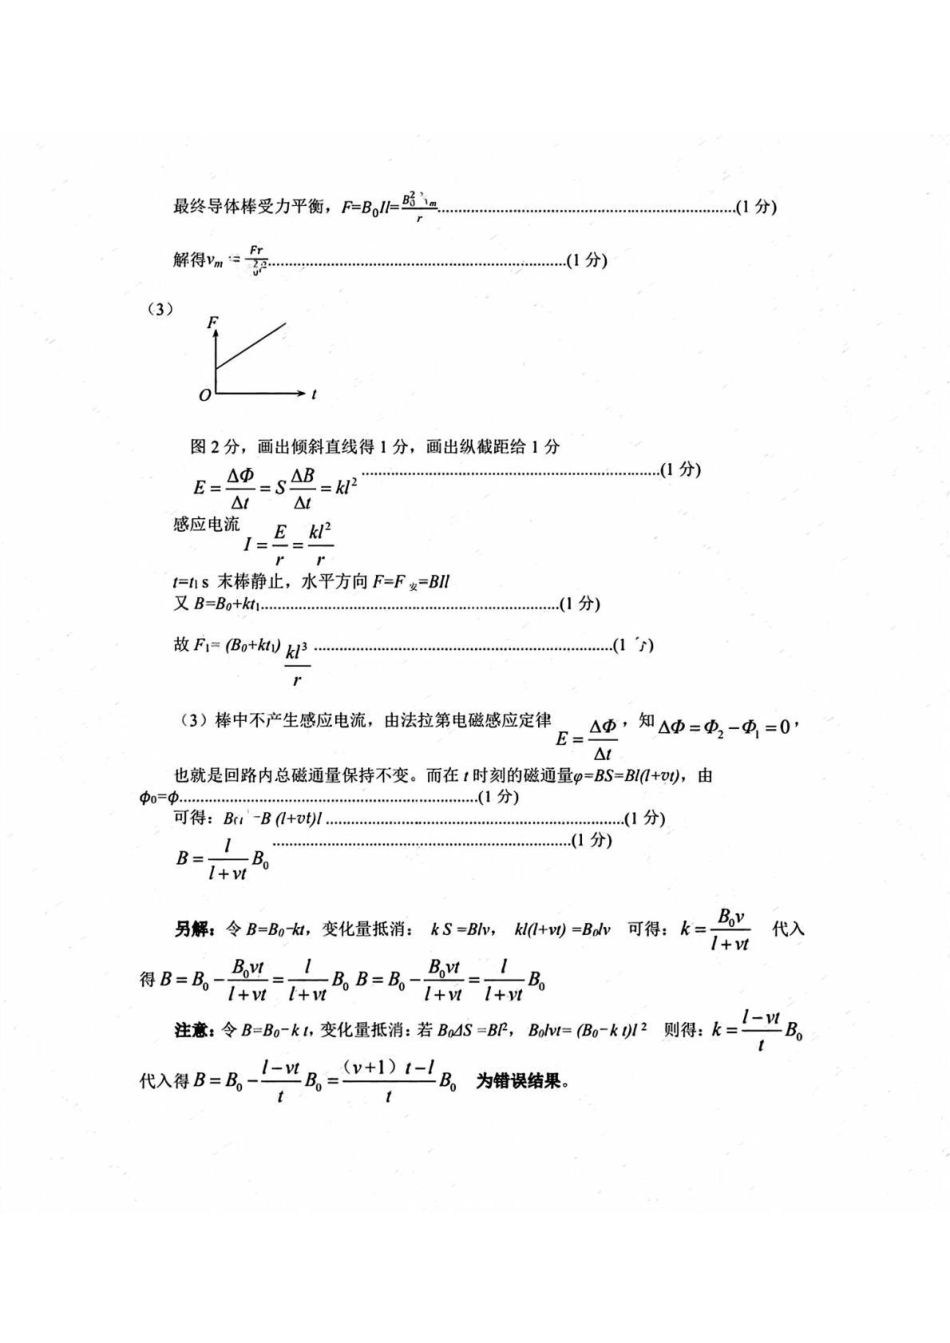 最终导体棒受力平衡，F=B₀Il= ……(1 分)
解得vₘ = Fr ……(1 分)
（3）
F
O t
图 2 分，画出倾斜直线得 1 分，画出纵截距给 1 分
E = ΔΦ/Δt = S ΔB/Δt = kl² ……(1 分)
感应电流 I = E/r = kl²/r
t=t₁ s 末棒静止，水平方向 F=F安=BIl
又 B=B₀+kt₁ ……(1 分)
故 F₁= (B₀+kt₁) kl³/r ……(1
（3）棒中不产生感应电流，由法拉第电磁感应定律 E = ΔΦ/Δt，知 ΔΦ = Φ₂ − Φ₁ = 0，
也就是回路内总磁通量保持不变。而在 t 时刻的磁通量φ=BS=Bl(l+vt)，由
ϕ₀=ϕ ……(1 分)
可得： B (l+vt)l ……(1 分)
B = l/(l+vt) B₀ ……(1 分)
另解：令 B=B₀-kt，变化量抵消： k S =Blv， kl(l+vt) =B₀lv 可得：k = B₀v/(l+vt) 代入
得 B = B₀ − B₀vt/(l+vt) = l/(l+vt) B₀ B = B₀ − B₀vt/(l+vt) = l/(l+vt) B₀
注意：令 B=B₀-k t，变化量抵消：若 B₀ΔS =Bl²， B₀lvt= (B₀-k t)l ² 则得：k = (l−vt)/t B₀
代入得 B = B₀ − (l−vt)/t B₀ = （v+1）t−l/t B₀ 为错误结果。